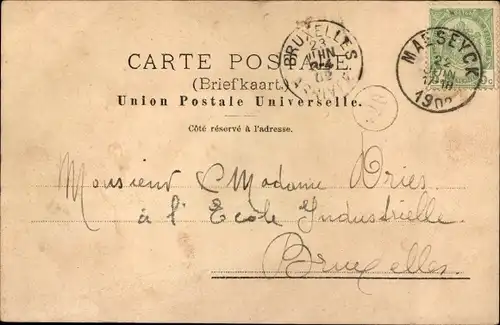 CARTE POSTALE.
(Briefkaart.)
Union Postale Universelle.
Côté réservé à l'adresse.
BRUXELLES
23
JUIN
MAESEYCK
22
JUIN
Monsieur & Madame Dries
à l'Ecole Industrielle
Bruxelles